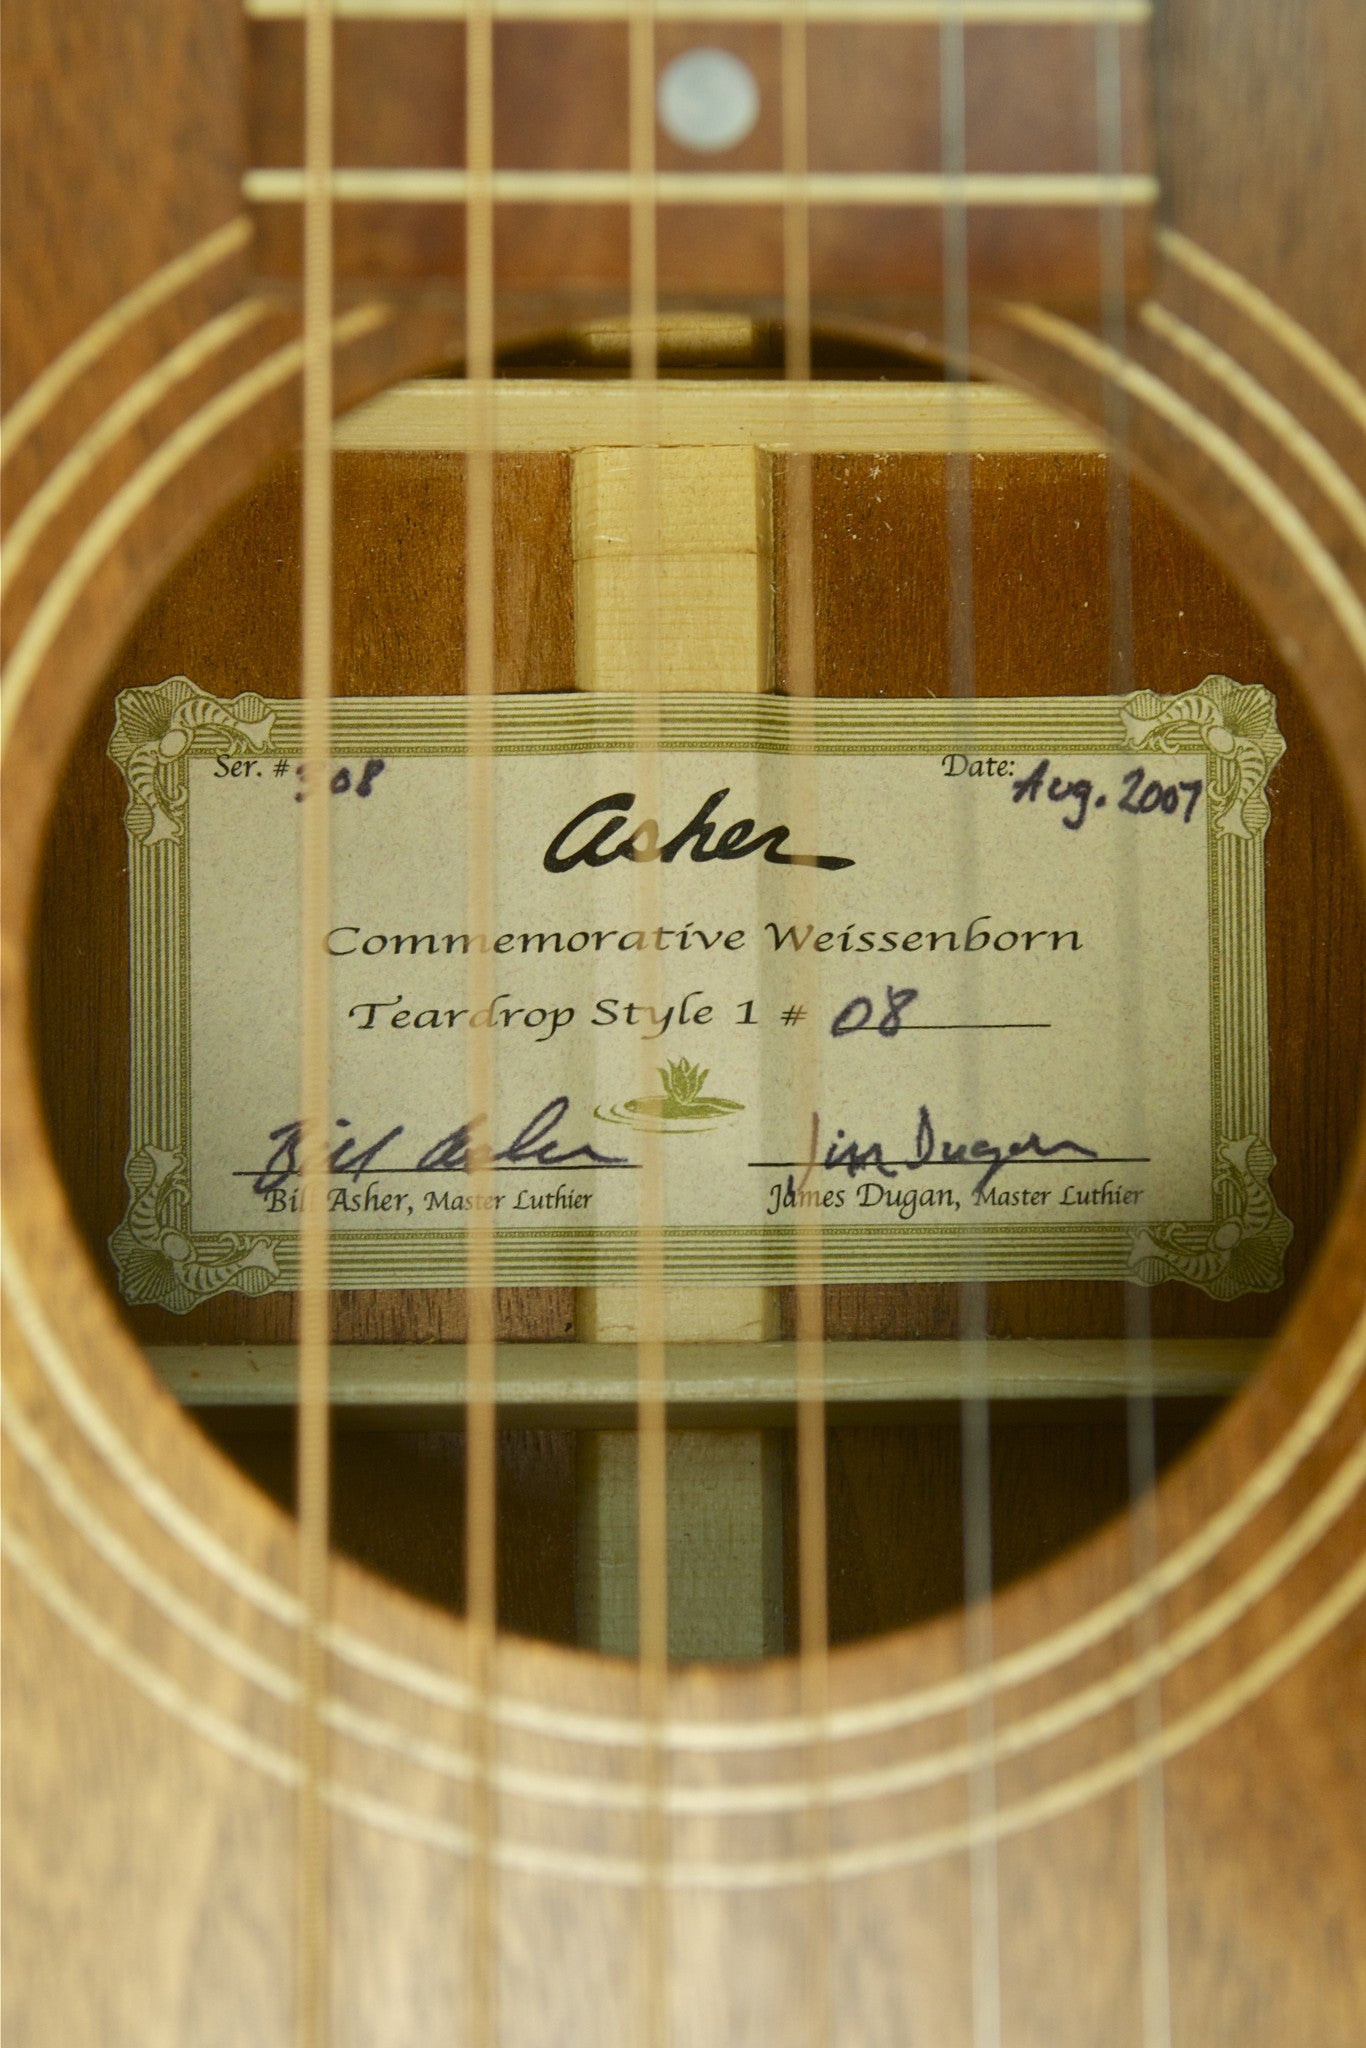 Ser. # 308 Date: Aug. 2007
Asher
Commemorative Weissenborn
Teardrop Style 1 # 08
Bill Asher Jim Dugan
Bill Asher, Master Luthier James Dugan, Master Luthier